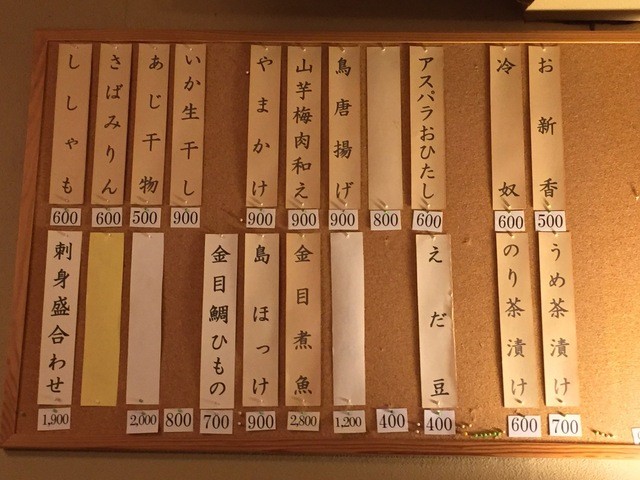 お新香
500
冷奴
600
アスパラおひたし
600
800
鳥唐揚げ
900
山芋梅肉和え
900
やまかけ
900
いか生干し
900
あじ干物
500
さばみりん
600
ししゃも
600
うめ茶漬け
700
のり茶漬け
600
えだ豆
400
400
1,200
金目煮魚
2,800
島ほっけ
900
金目鯛ひもの
700
800
2,000
刺身盛合わせ
1,900